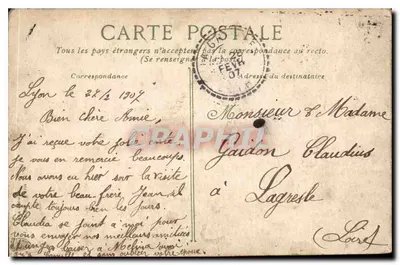 CARTE POSTALE
Tous les pays étrangers n'acceptent pas la correspondance au recto.
(Se renseigner à la poste)
Correspondance
Adresse du destinataire
FEVR
07
Lyon le 28/2 1907
Bien chère Amie,
J'ai reçue votre jolie carte
je vous en remercie beaucoups.
Nous avons eu hier soir la visite
de votre beau-frère Jean il
compte toujours bien les jours.
Claudia se joint à moi pour
vous envoyer nos meilleurs amitiées
Monsieur & Madame
Gardon Claudius
à Lagresle
(Loire)